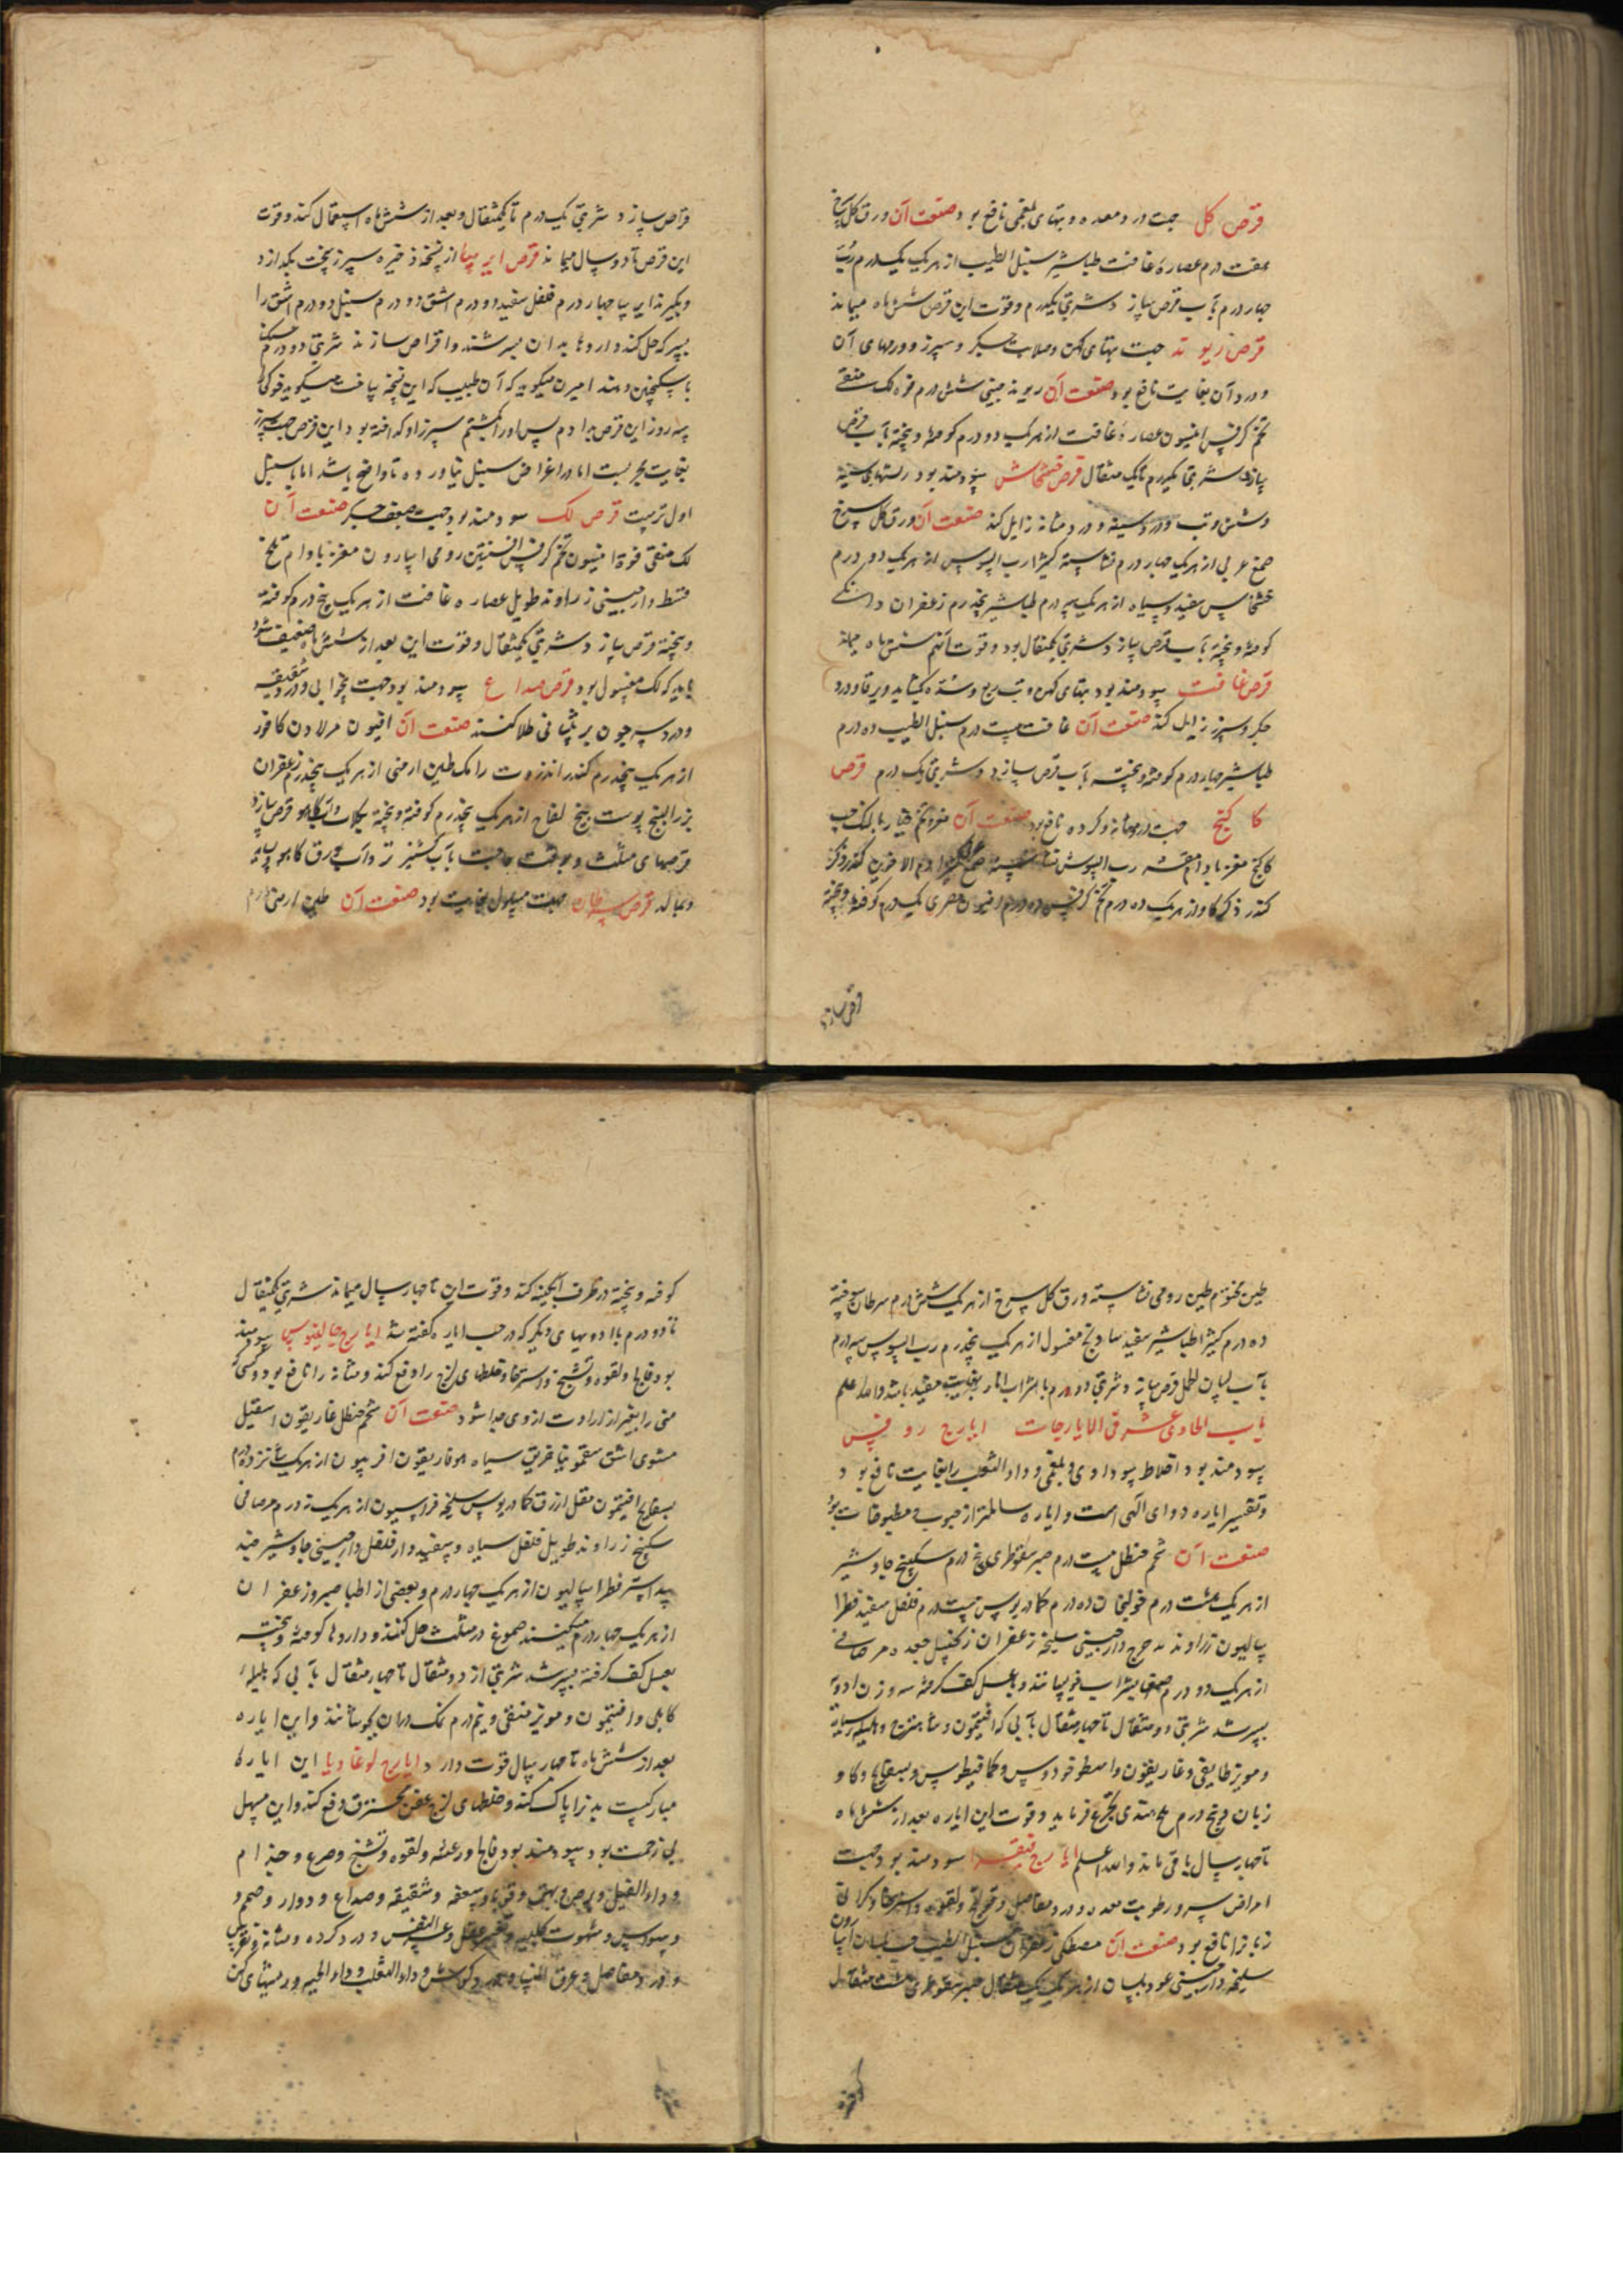 قرص گل جهت درد معده و تبهای بلغمی نافع بود صنعت آن ورق گل سرخ
هفت درم عصاره غافت طباشیر سنبل الطیب از هر یک یکدرم
چهار درم بآب قرص سازند شربتی یکدرم و قوت این قرص شش ماه میماند
قرص ریوند جهت تبهای کهن و صلابت جگر و سپرز و ورمهای آن
و درد آن بغایت نافع بود صنعت آن ریوند چینی شش درم فوه لک منقی
تخم کرفس انیسون عصاره غافت از هر یک دو درم کوفته و بیخته بآب قرص
سازند شربتی یکدرم تا یک مثقال قرص خشخاش سودمند بود
و تب و درد سینه و درد مثانه زایل کند صنعت آن ورق گل سرخ
صمغ عربی از هر یک چهار درم نشاسته کثیرا رب السوس از هر یک دو درم
خشخاش سفید و سیاه از هر یک سه درم طباشیر پنجدرم زعفران دانکی
کوفته و بیخته بآب قرص سازند شربتی یکمثقال بود و قوت آن شش ماه میماند
قرص غافت سودمند بود تبهای کهن و تب ربع و سده بگشاید و یرقان و درد
جگر و سپرز زایل کند صنعت آن غافت بیست درم سنبل الطیب ده درم
طباشیر چهار درم کوفته و بیخته بآب قرص سازند و شربتی یک درم قرص
کاکنج جهت درد مثانه و کرده نافع بود صنعت آن مغز تخم خیار بالنک حب
کاکنج مغز بادام مقشر رب السوس نشاسته صمغ عربی دم الاخوین کندر
کندر از هر یک ده درم تخم کرفس ده درم افیون مصری یک درم کوفته و بیخته
قرص سازند
قراص سازند و شربتی یک درم تا یکمثقال و بعد از شش ماه استعمال کنند و قوت
این قرص تا دو سال میماند قرص ایرسا از نسخه ذخیره سپرز سخت بگدازد
و بگیرند ایرسا چهار درم فلفل سفید دو درم اشق دو درم سنبل دو درم اشق را
بسرکه حل کنند و داروها بدان بسرشند و اقراص سازند شربتی دو درم
با سکنجبین دهند میگوید که آن طبیب که این نسخه ساخت میگوید
سه روز این قرص بدادم پس او را بکشتم سپرز او گداخته بود این قرص جهت سپرز
بغایت مجربست اما در اغراض سنبل نیاورده تا واضح باشد اما با سنبل
اولی ترست قرص لک سودمند بود جهت ضعف جگر صنعت آن
لک منقی فوة انیسون تخم کرفس افسنتین رومی اسارون مغز بادام تلخ
قسط دارچینی زراوند طویل عصاره غافت از هر یک پنج درم کوفته
و بیخته قرص سازند و شربتی یکمثقال و قوت این بعد از شش ماه ضعیف شود
باید که لک مغسول بود قرص صداع سودمند بود جهت بیخوابی و درد شقیقه
و درد سر چون بر پیشانی طلا کنند صنعت آن افیون مر لادن کافور
از هر یک پنجدرم کندر انزروت رامک طین ارمنی از هر یک پنجدرم زعفران
بزر البنج پوست بیخ لفاح از هر یک پنجدرم کوفته و بیخته بگلاب و آب کاهو قرص سازند
قرصهای مثلث و بوقت حاجت بآب کشنیز تر و آب ورق کاهو بسایند
و بمالند قرص سرطان جهت مسلول بغایت بود صنعت آن طین ارمنی
طین مختوم طین رومی نشاسته ورق گل سرخ از هر یک شش درم سرطان سوخته
ده درم کثیرا طباشیر سفید شادنج مغسول از هر یک پنجدرم رب السوس سه درم
بآب لسان الحمل قرص سازند و شربتی دو درم با شراب انار بغایت مفید باشد والله اعلم
باب الحادی عشر فی الایارجات ایارج روفس
سودمند بود اخلاط سوداوی و بلغمی و داء الثعلب را بغایت نافع بود
و تفسیر ایاره دوای الهی است و ایاره سالمتر از حبوب و مطبوخات بود
صنعت آن شحم حنظل بیست درم صبر سقوطری پنج درم سکبینج جاوشیر
از هر یک هشت درم ده درم کمادریوس بیست درم فلفل سفید فطرا
سالیون زراوند مدحرج دارچینی سلیخه زعفران زنجبیل جعده مر صافی
از هر یک دو درم صمغها بشراب بخیسانند و بعسل کف گرفته سه وزن ادویه
بسرشند شربتی دو مثقال تا چهار مثقال بآبی که افتیمون و شاهترج و هلیله سیاه
و مویز طایفی و غاریقون و اسطوخودوس و کمافیطوس و بسفایج و گاو
زبان و پنج درم ملح هندی تجرع فرماید و قوت این ایاره بعد از شش ماه
تا چهار سال باقی ماند والله اعلم ایارج فیقرا سودمند بود جهت
امراض سر و رطوبت معده و درد مفاصل و قولنج و لقوه و استرخا و گرانی
زبان را نافع بود صنعت آن مصطکی زعفران سنبل الطیب حب بلسان اسارون
سلیخه دارچینی عود بلسان از هر یک یک مثقال صبر سقوطری هشت مثقال
کوفته
کوفته و بیخته در ظرف آبگینه کنند و قوت این تا چهار سال میماند شربتی یکمثقال
تا دو درم با ادویهای دیگر که در حب ایاره گفته شد ایارج جالینوس سودمند
بود فالج و لقوه و تشنج و استرخا و خلطهای لزج را دفع کند و مثانه را نافع بود و کسی که
منی را بغیر از ارادت از وی جدا شود صنعت آن شحم حنظل غاریقون اسقیل
مشوی اشق سقمونیا خربق سیاه هوفاریقون افربیون از هر یک
بسفایج افتیمون مقل ازرق کمادریوس سلیخه فراسیون از هر یک درم مر صافی
سکبینج زراوند طویل فلفل سیاه و سفید دار فلفل دارچینی جاوشیر جند
بیدستر فطراسالیون از هر یک چهار درم و بعضی از اطبا صبر و زعفران
از هر یک چهار درم میکنند صموغ در مثلث حل کنند و داروها کوفته و بیخته
بعسل کف گرفته بسرشند شربتی از دو مثقال تا چهار مثقال بآبی که هلیله
کابلی و افتیمون و مویز منقی و نیم درم نمک در آن جوشانند و این ایاره
بعد از شش ماه تا چهار سال قوت دارد ایارج لوغاذیا این ایاره
مبارکیست بدن را پاک کند و خلطهای لزج عفن محترق دفع کند و این مسهل
بی زحمت بود سودمند بود فالج و رعشه و لقوه و تشنج و صرع و جذام
و داء الفیل و برص و بهق و قوبا و سعفه و شقیقه و صداع و دوار و صمم و
وسواس و شهوت کلبیه و عسر النفس و درد کرده و مثانه و نقرس
و درد مفاصل و عرق النسا و درد گوش و داء الثعلب و داء الحیه و ریشهای کهن